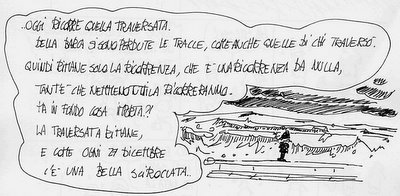 ..OGGI RICORRE QUELLA TRAVERSATA.
DELLA BARCA SI SONO PERDUTE LE TRACCE, COME ANCHE QUELLE DI CHI TRAVERSÒ.
QUINDI RIMANE SOLO LA RICORRENZA, CHE E' UNA RICORRENZA DA NULLA,
TANTE CHE NEMMENO TUTTI LA RICORRERANNO.
MA IN FONDO COSA IMPORTA?!
LA TRAVERSATA RIMANE,
E COME OGNI 27 DICEMBRE
C'È UNA BELLA SCIROCCATA..